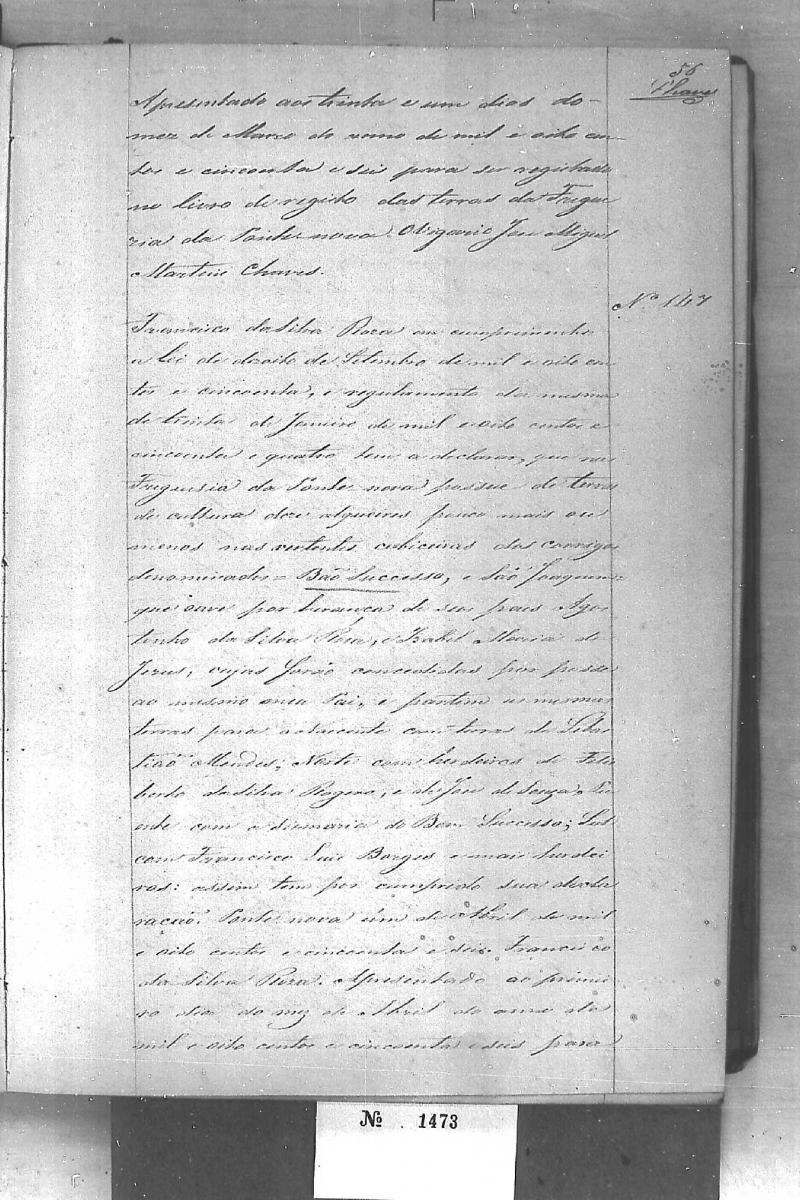 56
Chaves
Apresentado aos trinta e um dias do
mez de Março do anno de mil e oito cen
tos e cincoenta e seis para ser registado
no livro de registo das terras da Fregue
zia da Ponte nova. O Vigario Joze Miguel
Martins Chaves.
Nº 147
Francisco da Silva Roza em cumprimento
a Lei de dezoito de Setembro de mil e oito cen
tos e cincoenta, e regulamento da mesma
de trinta de Janeiro de mil e oito centos e
cincoenta e quatro tem a declarar, que na
Freguesia da Ponte nova possue de terras
de cultura doze alqueires pouco mais ou
menos nas vertentes cabiceiras dos corregos
denominados = Bão Successo, e São Joaquim =
que ouve por herança de seus pais Agos
tinho da Silva Roza, e Izabel Maria de
Jezus, cujas forão concedidas por posse
ao mesmo meu Pai, e partem as mesmas
terras para o nascente com terras de Sebas
tião Mendes; Norte com herdeiros de Feles
berto da Silva e de Joze de Souza, Po
ente com a Sismaria do Bom Successo; Sul
com Francisco Luis Borges e mais herdei
ros: assim tem por cumprido sua decla
ração. Ponte nova um de Abril de mil
e oito centos e cincoenta e seis. Francisco
da Silva Roza. Apresentado ao primei
ro dia do mez de Abril do anno de
mil e oito centos e cincoenta e seis para
Nº 1473